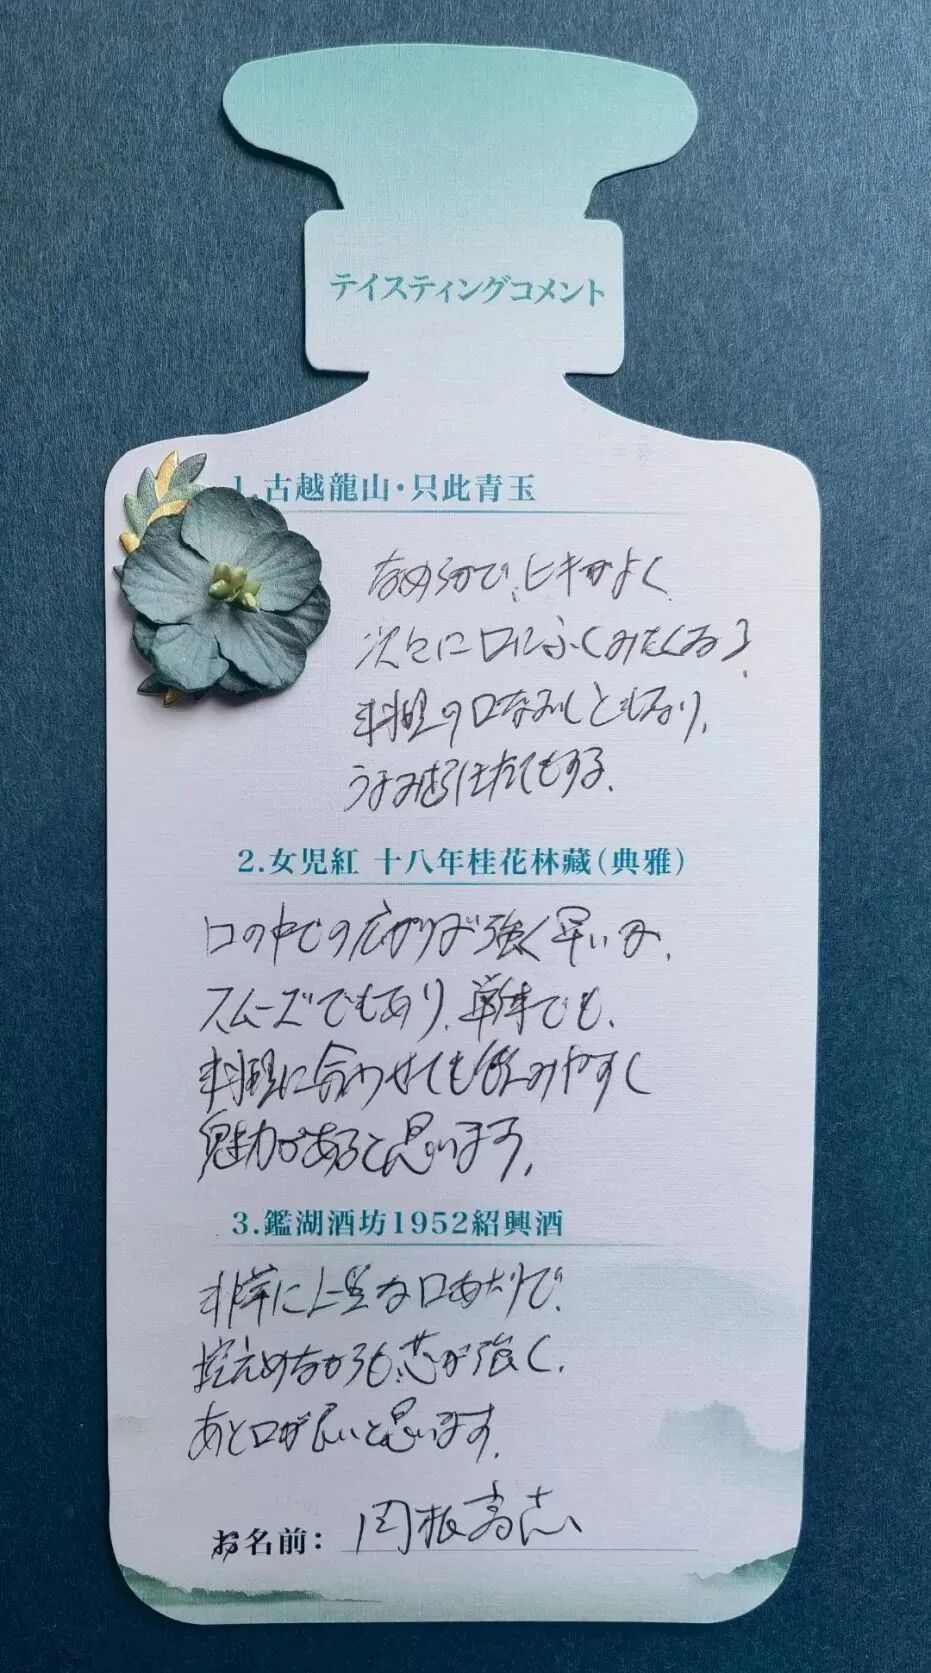 テイスティングコメント
1.古越龍山・只此青玉
なめらかで、ヒキがよく
次々に口にふくみたくなる。
料理の口なおしともなり、
うまみを引き立てもする。
2.女児紅 十八年桂花林藏(典雅)
口の中での広がりが強く早いが、
スムーズでもあり、単体でも、
料理に合わせても飲みやすく
魅力があると思います。
3.鑑湖酒坊1952紹興酒
非常に上質な口あたりで、
控えめながらも芯が強く、
あと口が良いと思います。
お名前: 根高志